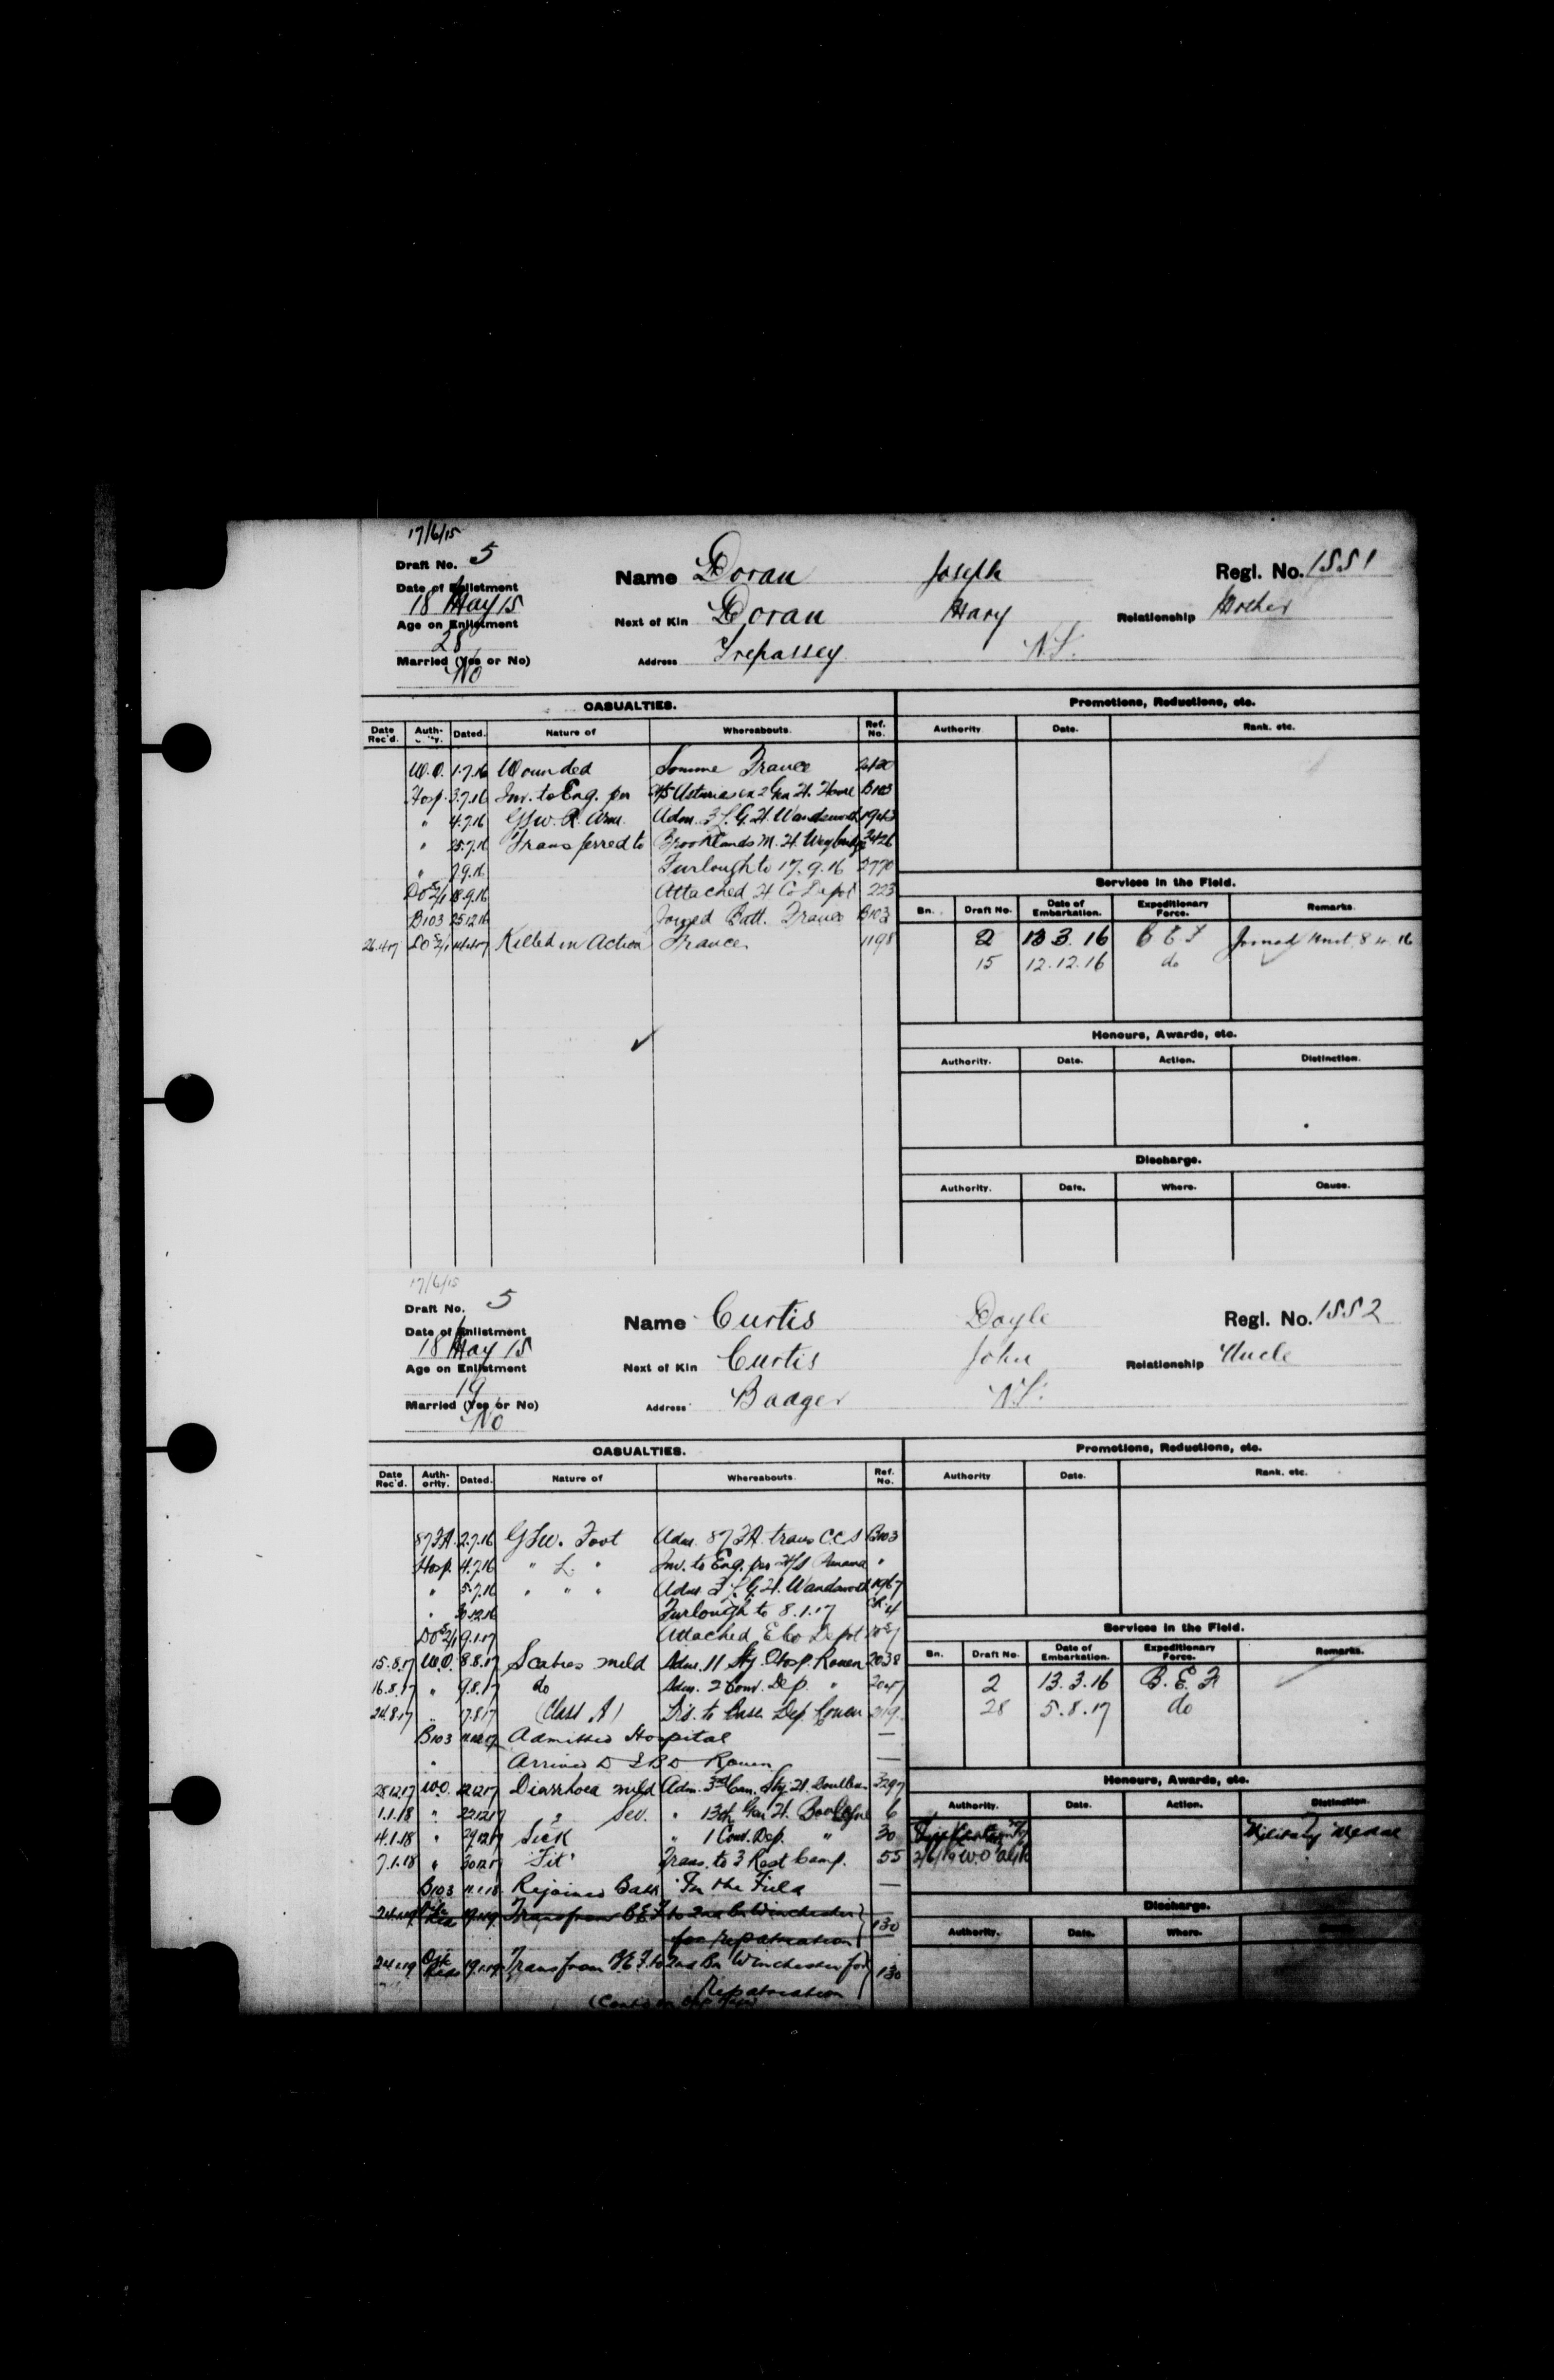 17/6/15
Draft No. 5
Name Doran Joseph Regl. No. 1551
Date of Enlistment
18 May 15
Next of Kin Doran Mary Relationship Mother
Age on Enlistment
28
Address Trepassey N.F.
Married (Yes or No)
No
CASUALTIES. Promotions, Reductions, etc.
Date Rec'd. Auth- Dated. Nature of Whereabouts. Ref. No. Authority Date. Rank, etc.
W.O. 1.7.16 Wounded Somme France
Hosp. 3.7.16 Inv. to Eng. per H/S Asturias ex 2 Gen H. Havre B103
" 4.7.16 GSW. R. Arm. Adm. 3 L.G.H. Wandsworth 1943
" 25.7.16 Transferred to Brooklands M.H. Weybridge 2426
" 7.9.16 Furlough to 17.9.16 2770
18.9.16 Attached H Co Depot 223
Services in the Field.
B103 25.12.16 Joined Batt. France B103
Bn. Draft No. Date of Embarkation. Expeditionary Force. Remarks.
26.4.17 14.4.17 Killed in Action France 1198
2 13.3.16 B E F Joined Unit 8.4.16
15 12.12.16 do
Honours, Awards, etc.
Authority. Date. Action. Distinction.
Discharge.
Authority. Date. Where. Cause.
17/6/15
Draft No. 5
Name Curtis Doyle Regl. No. 1552
Date of Enlistment
18 May 15
Next of Kin Curtis John Relationship Uncle
Age on Enlistment
19
Address Badger N.F.
Married (Yes or No)
No
CASUALTIES. Promotions, Reductions, etc.
Date Rec'd. Auth- ority. Dated. Nature of Whereabouts. Ref. No. Authority Date. Rank, etc.
87 FA 2.7.16 GSW. Foot Adm. 87 FA trans C.C.S B103
Hosp. 4.7.16 " L. " Inv. to Eng. per H/S Panama "
" 5.7.16 " " " Adm. 3 L.G.H. Wandsworth 1967
" Furlough to 8.1.17
9.1.17 Attached E Co Depot
Services in the Field.
15.8.17 W.O. 8.8.17 Scabies mild Adm. 11 Sty. Hosp. Rouen 2038
Bn. Draft No. Date of Embarkation. Expeditionary Force. Remarks.
16.8.17 " 9.8.17 do Adm. 2 Conv. Dep. " 2047
2 13.3.16 B.E.F
24.8.17 " 17.8.17 (Class A) Dis. to Base Dep. Rouen 2119
28 5.8.17 do
B103 Admitted Hospital —
" Arrived D I B D Rouen —
28.12.17 W.O. 22.12.17 Diarrhoea mild Adm. 3rd Can. Sty. H. Doullens 3297
Honours, Awards, etc.
1.1.18 " 27.12.17 " Sev. " 13th Gen H. Boulogne 6
Authority. Date. Action. Distinction.
4.1.18 " 29.12.17 Sick " 1 Conv. Dep. " 30
Military Medal
7.1.18 " 30.12.17 'Fit' Trans. to 3 Rest Camp. 55
B103 11.1.18 Rejoined Batt. In the Field —
Discharge.
24.1.19 19.1.19 Trans from B.E.F. to 2nd Bn Winchester
for repatriation 130
Authority. Date. Where.
24.1.19 19.1.19 Trans from B.E.F. to 2nd Bn Winchester for
Repatriation 130